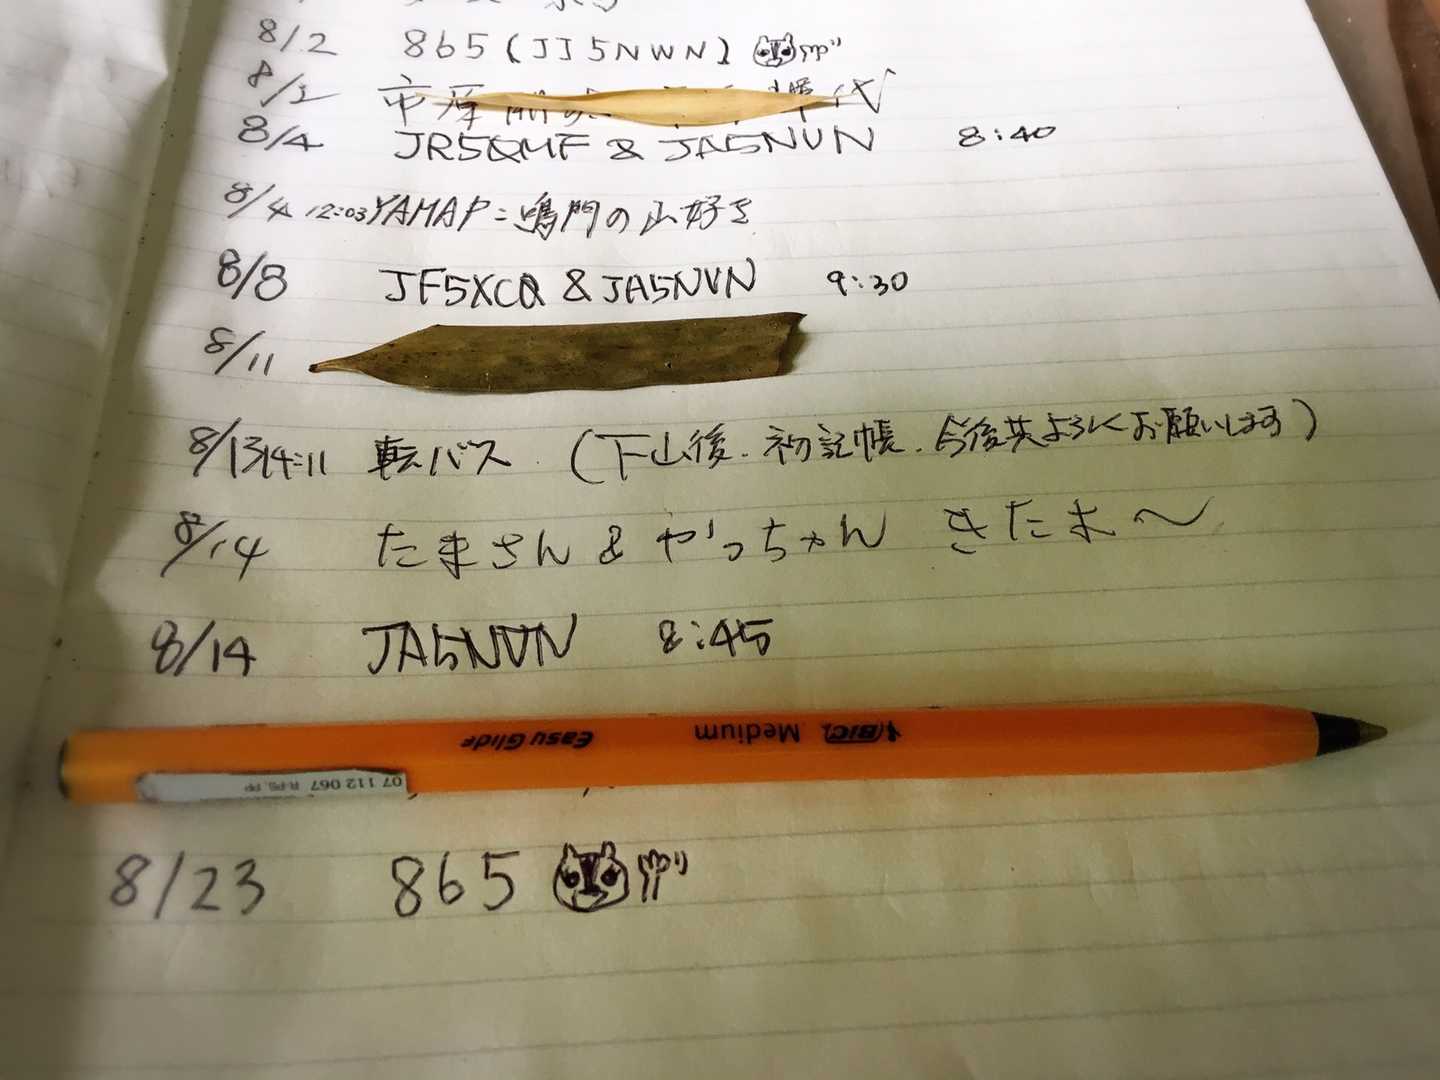 8/2 865 (JJ5NWN)
8/2 市原
8/4 JR5QMF & JA5NVN 8:40
8/4 12:03 YAMAP:鳴門の山好き
8/8 JF5XCQ & JA5NVN 9:30
8/11
8/13 14:11 転バス (下山後.初記帳.今後共よろしくお願いします)
8/14 たまさん & やっちゃん きたま〜
8/14 JA5NVN 8:45
BIC Medium Easy Glide
07 112 067 R-PS, PP
8/23 865